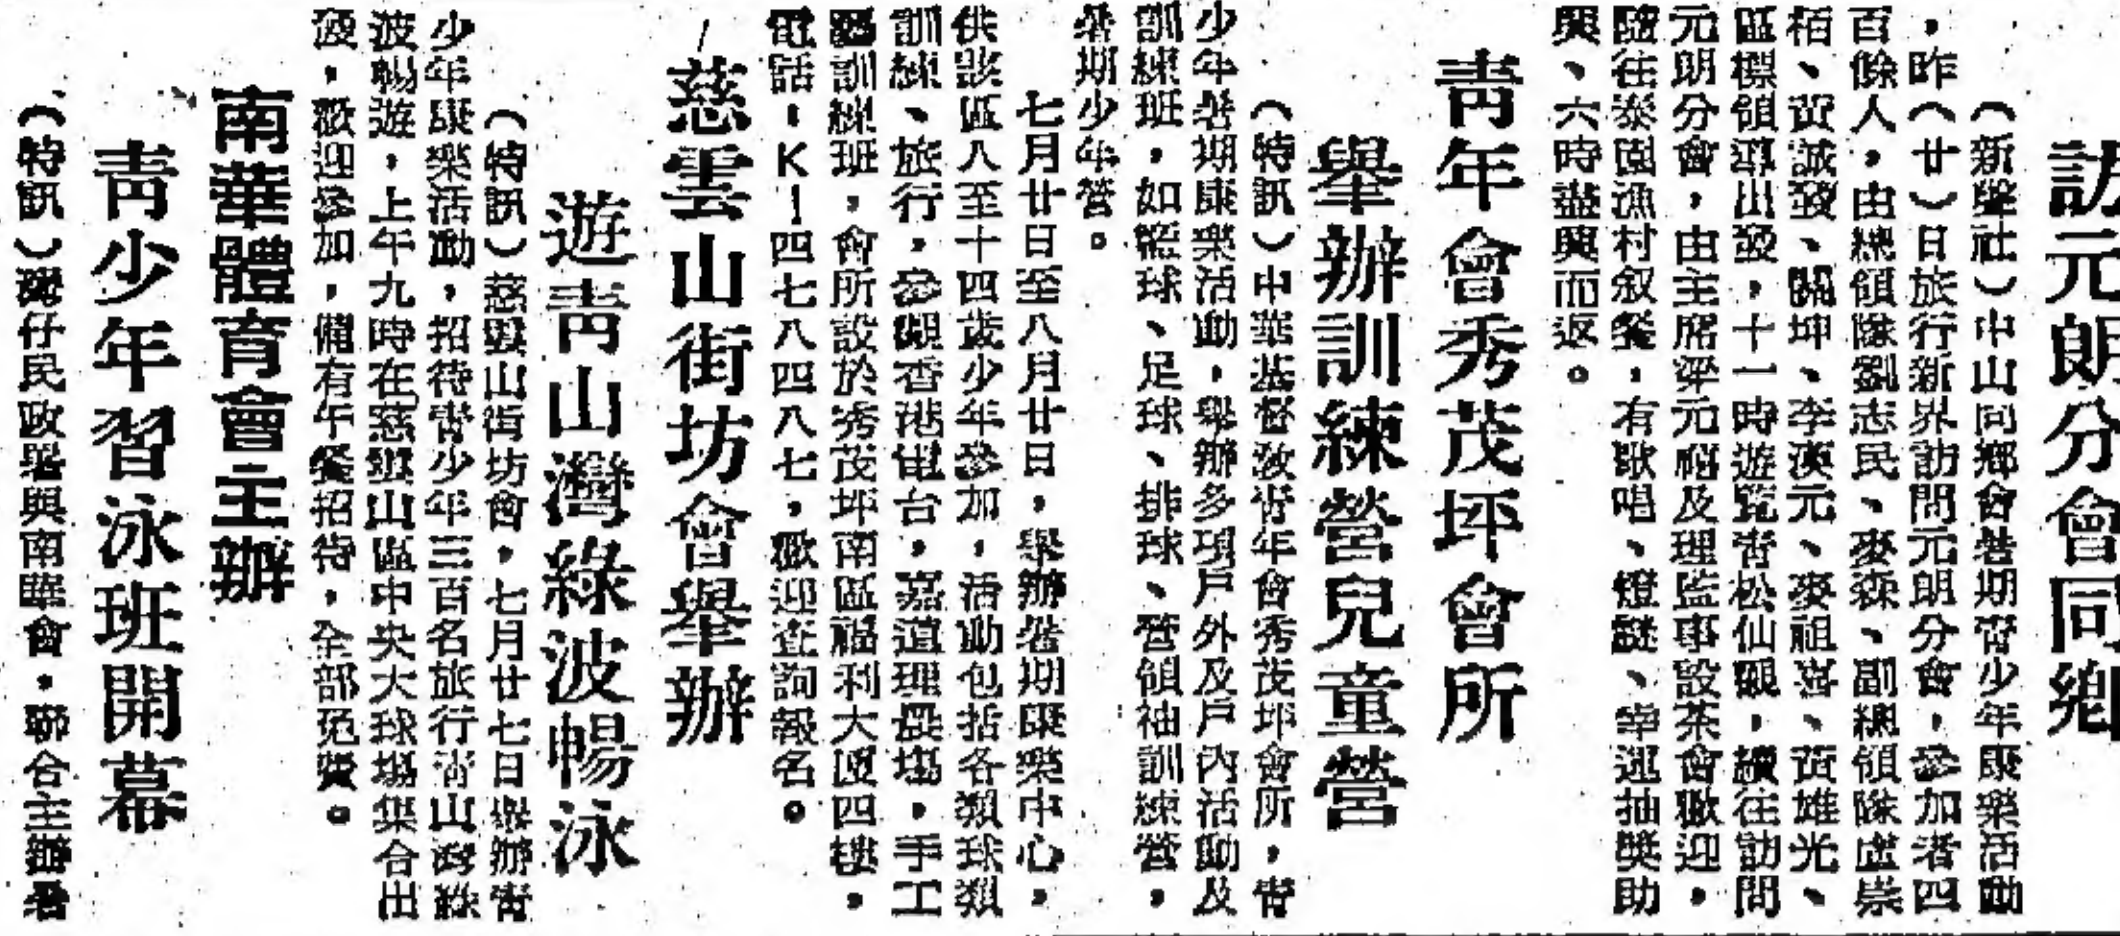 訪元朗分會同鄉
（新聲社）中山同鄉會暑期青少年康樂活動
，昨（廿）日旅行新界訪問元朗分會，參加者四
百餘人，由總領隊劉志民、麥森、副總領隊盧崇
栢、黃誠發、關坤、李漢元、麥祖喜、黃雄光、
區標領導出發，十一時遊覽青松仙觀，續往訪問
元朗分會，由主席梁元福及理監事設茶會歡迎，
隨往泰園漁村叙餐，有歌唱、燈謎、幸運抽獎助
興、六時盡興而返。
青年會秀茂坪會所
舉辦訓練營兒童營
（特訊）中華基督敎靑年會秀茂坪會所，青
少年暑期康樂活動，舉辦多項戶外及戶內活動及
訓練班，如籃球、足球、排球、營領袖訓練營，
暑期少年營。
七月廿日至八月廿日，舉辦暑期康樂中心，
供該區八至十四歲少年參加，活動包括各類球類
訓練、旅行，參觀香港電台，嘉道理農場，手工
訓練班，會所設於秀茂坪南區福利大廈四樓，
電話，K—四七八四八七，歡迎查詢報名。
慈雲山街坊會舉辦
遊青山灣綠波暢泳
（特訊）慈雲山街坊會，七月廿七日舉辦青
少年康樂活動，招待青少年三百名旅行青山灣綠
波暢遊，上午九時在慈雲山區中央大球場集合出
發，歡迎參加，備有午餐招待，全部免費。
南華體育會主辦
青少年習泳班開幕
（特訊）灣仔民政署與南華會，聯合主辦暑